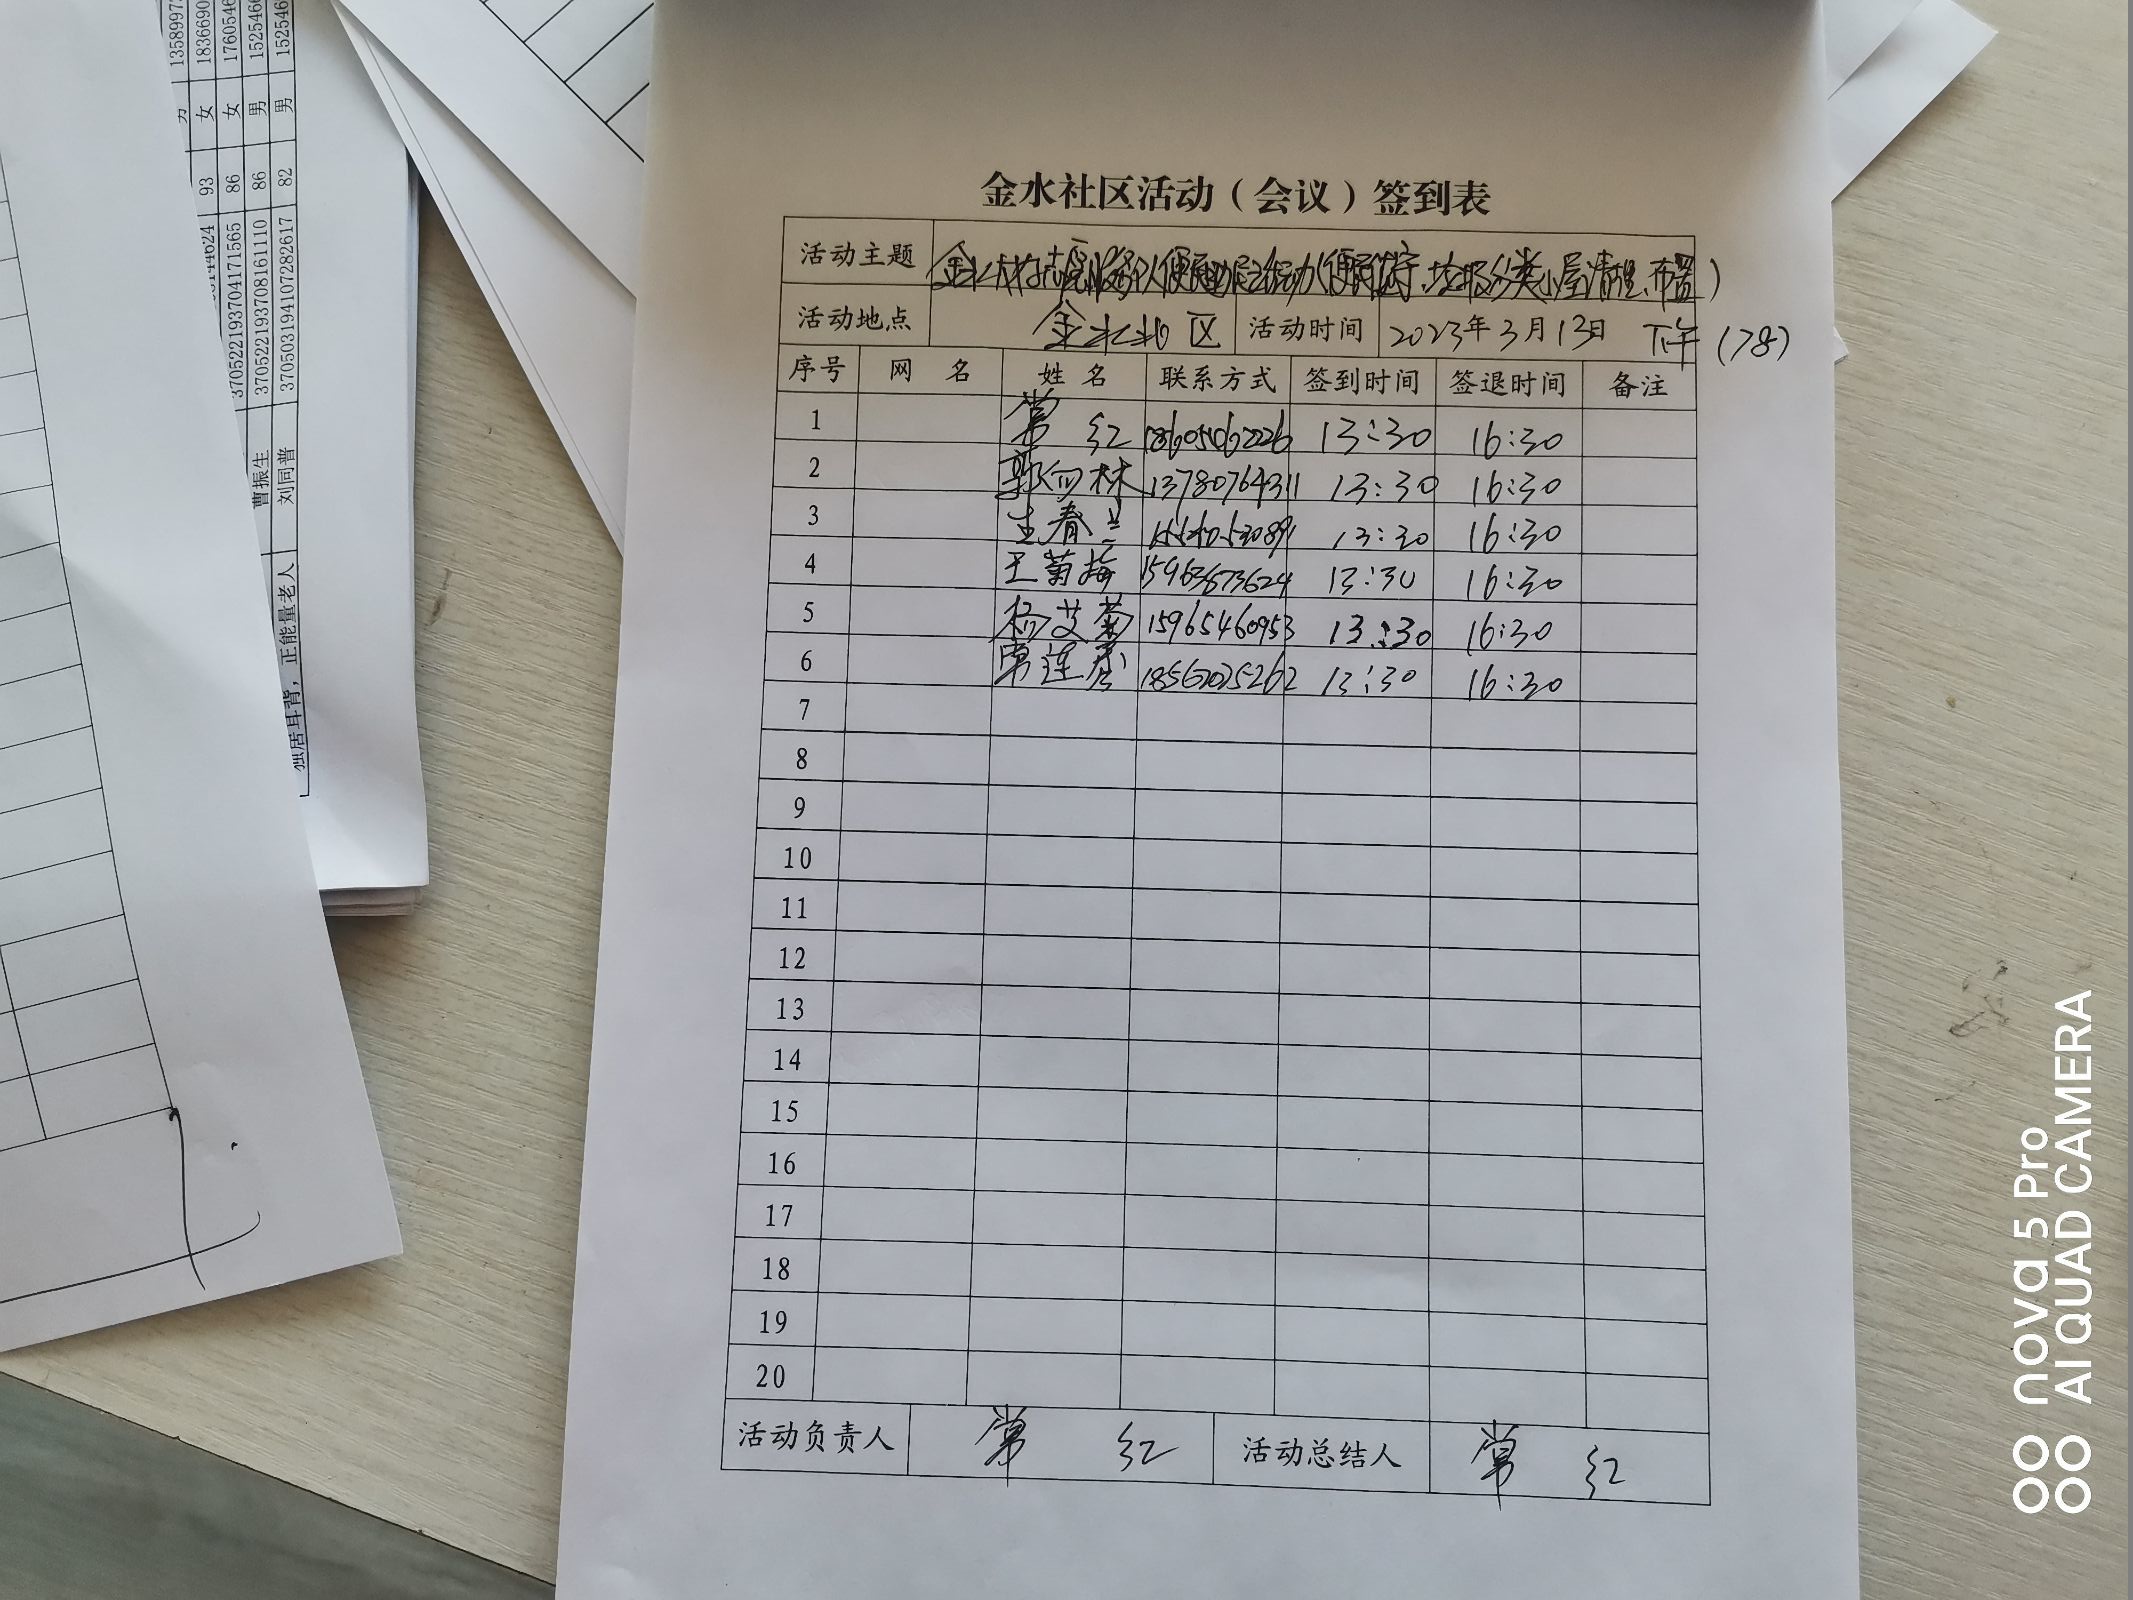 金水社区活动（会议）签到表
活动主题 金水社区志愿服务队便民助民活动(便民值守、垃圾分类小屋清理、布置)
活动地点 金水北区 活动时间 2023年3月13日 下午(78)
序号 网 名 姓 名 联系方式 签到时间 签退时间 备注
1 常 红 13:30 16:30
2 郭向林 13780764311 13:30 16:30
3 王春兰 13:30 16:30
4 王菊梅 15963673624 13:30 16:30
5 杨艾菊 15965460953 13:30 16:30
6 常连秀 18562025262 13:30 16:30
7
8
9
10
11
12
13
14
15
16
17
18
19
20
活动负责人 常 红 活动总结人 常 红
1358997
女 93 1836690
370522193704171565 86 女 1760546
曹振生 370522193708161110 86 男 152546
刘同普 370503194107282617 82 男 152546
独居耳背，正能量老人
nova 5 Pro
AI QUAD CAMERA